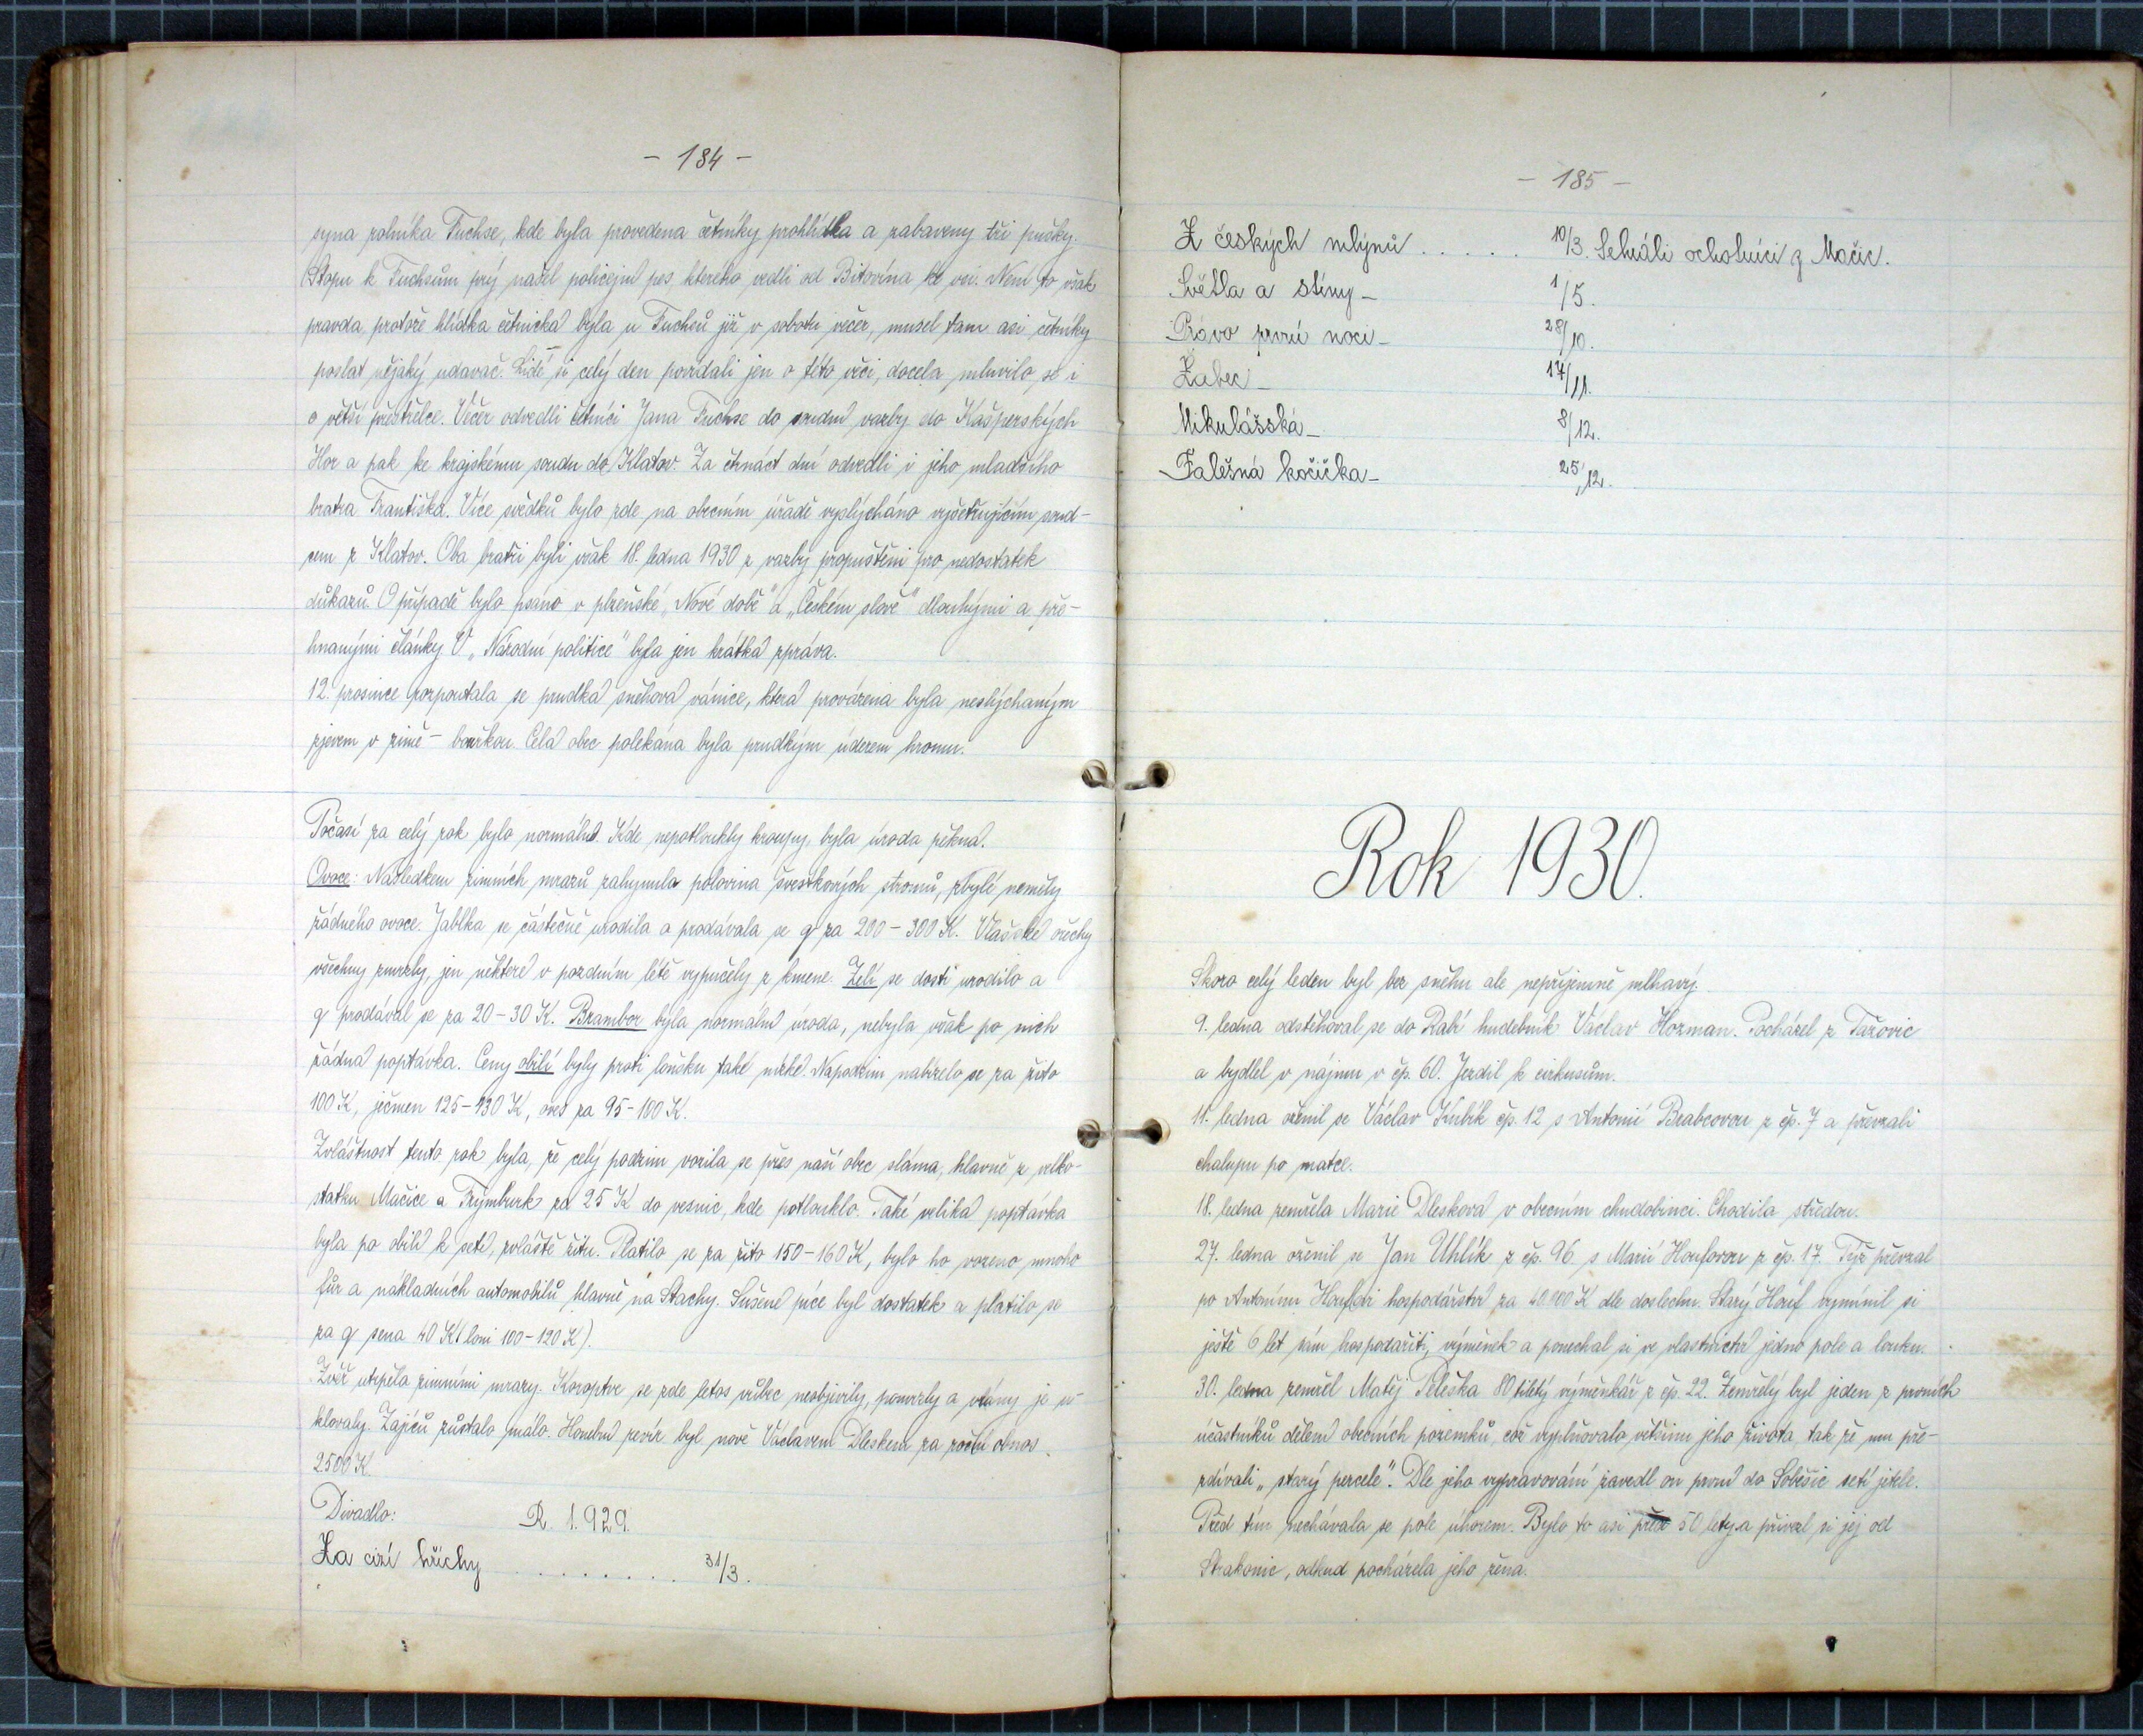 - 184 -
syna rolníka Fuchse, kde byla provedena četníky prohlídka a zabaveny tři pušky.
Stopu k Fuchsům prý našel policejní pes kterého vedli od Bitovína ke vsi. Není to však
pravda, protože hlídka četnická byla u Fuchsů již v sobotu večer, musel tam asi četníky
poslat nějaký udavač. Lidé si celý den povídali jen o této věci, docela mluvilo se i
o větší přestřelce. Večer odvedli četníci Jana Fuchse do soudní vazby do Kašperských
Hor a pak ke krajskému soudu do Klatov. Za čtrnáct dní odvedli i jeho mladšího
bratra Františka. Více svědků bylo zde na obecním úřadě vyslýcháno vyšetřujícím soud-
cem z Klatov. Oba bratři byli však 18. ledna 1930 z vazby propuštěni pro nedostatek
důkazů. O případě bylo psáno v plzeňské „Nové době" a „Českém slově" dlouhými a pře-
hnanými články. V „Národní politice" byla jen krátká zpráva.
12. prosince rozpoutala se prudká sněhová vánice, která provázena byla neslýchaným
zjevem v zimě - bouřkou. Celá obec polekána byla prudkým úderem hromu.
Počasí za celý rok bylo normální. Kde nepotloukly kroupy, byla úroda pěkná.
Ovoce: Následkem zimních mrazů zahynula polovina švestkových stromů, zbylé neměly
žádného ovoce. Jablka se částečně urodila a prodávala se q za 200-300 K. Vlašské ořechy
všechny zmrzly, jen některé v pozdním létě vypučely z kmene. Zelí se dosti urodilo a
q prodával se za 20-30 K. Brambor byla normální úroda, nebyla však po nich
žádná poptávka. Ceny obilí byly proti loňsku také nízké. Napodzim nabízelo se za žito
100 K, ječmen 125-130 K, oves za 95-100 K.
Zvláštnost tento rok byla, že celý podzim vozila se přes naší obec sláma, hlavně z velko-
statku Mačice a Frymburk za 25 K do vesnic, kde potlouklo. Také veliká poptavka
byla po obilí k setí, zvláště žitu. Platilo se za žito 150-160 K, bylo ho vozeno mnoho
fůr a nákladních automobilů hlavně na Stachy. Sušené píce byl dostatek a platilo se
za q sena 40 K (loni 100-120 K).
Zvěř utrpěla zimními mrazy. Koroptve se zde letos vůbec neobjevily, pomrzly a vrány je u-
klovaly. Zajíců zůstalo málo. Honební revír byl nově Václavem Dleskem za roční obnos
2500 K.
Divadlo: R. 1.929.
Za cizí hříchy ......... 31/3.
- 185 -
Z českých mlýnů ...... 10/3. Sehráli ochotníci z Mačic.
Světla a stíny - 1/5.
Právo první noci - 28/10.
Žabec - 17/11.
Mikulášská - 8/12.
Falešná kočička - 25/12.
Rok 1930.
Skoro celý leden byl bez sněhu ale nepříjemně mlhavý.
9. ledna odstěhoval se do Rabí hudebník Václav Hozman. Pocházel z Tažovic
a bydlel v nájmu v čp. 60. Jezdil k cirkusům.
11. ledna oženil se Václav Kubík čp. 12 s Antonií Brabcovou z čp. 7 a převzali
chalupu po matce.
18. ledna zemřela Marie Dlesková v obecním chudobinci. Chodila středou.
27. ledna oženil se Jan Uhlík z čp. 96 s Marií Houfovou z čp. 17. Týž převzal
po Antonínu Houfovi hospodářství za 40.000 K dle doslechu. Starý Houf vymínil si
ještě 6 let sám hospodařiti, výměnek a ponechal si ve vlastnictví jedno pole a louku.
30. ledna zemřel Matěj Peleška 80tiletý výměnkář z čp. 22. Zemřelý byl jeden z prvních
účastníků dělení obecních pozemků, což vyplňovalo většinu jeho života, tak že mu pře-
zdívali „starý percele". Dle jeho vypravování zavedl on první do Soběšic setí jetele.
Před tím nechávala se pole úhorem. Bylo to asi před 50 lety a přivezl si jej od
Strakonic, odkud pocházela jeho žena.